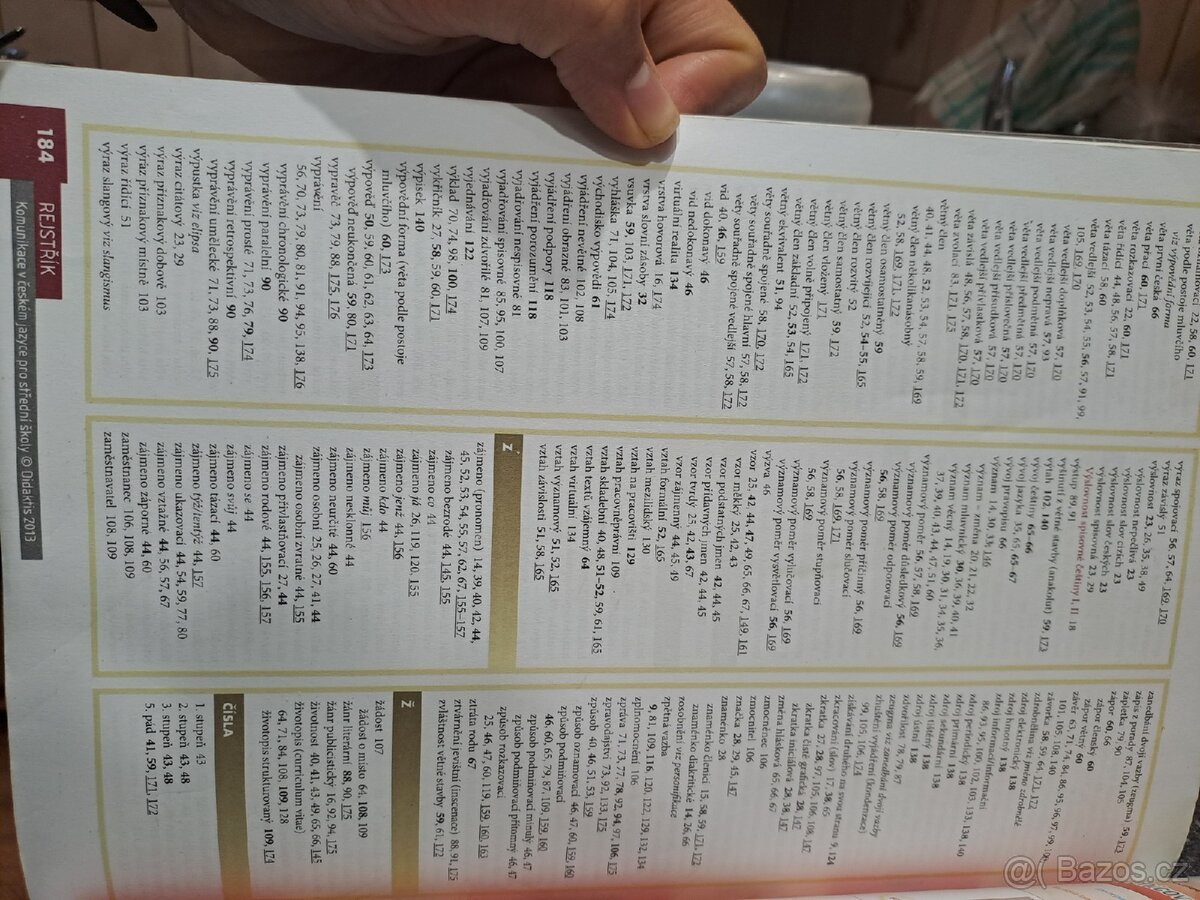 věta první česká 66
věta prací 60, 171
věta rozkazovací 22, 60, 171
věta řídicí 44, 48, 56, 57, 58, 171
věta tázací 58, 60
věta vedlejší 52, 53, 54, 55, 56, 57, 91, 99,
105, 169, 170
věta vedlejší doplňková 57, 170
věta vedlejší nepravá 57, 93
věta vedlejší podmětná 57, 170
věta vedlejší předmětná 57, 170
věta vedlejší příslovečná 57, 170
věta vedlejší přísudková 57, 170
věta vedlejší přívlastková 57, 170
věta závislá 48, 56, 57, 58, 170, 171, 172
věta zvolací 83, 171, 175
větný člen
40, 41, 44, 48, 52, 53, 54, 57, 58, 59, 169
větný člen několikanásobný
52, 58, 169, 171, 172
větný člen osamostatněný 59
větný člen rozvíjející 52, 54–55, 165
větný člen rozvitý 52
větný člen samostatný 59, 172
větný člen vložený 171
větný člen volně připojený 171, 172
větný člen základní 52, 53, 54, 165
větný ekvivalent 51, 94
věty souřadně spojené 58, 170, 172
věty souřadně spojené hlavní 57, 58, 172
věty souřadně spojené vedlejší 57, 58, 172
vid 40, 46, 159
vid dokonavý 46
vid nedokonavý 46
virtuální realita 134
vrstva hovorová 16, 174
vrstva slovní zásoby 32
vsuvka 59, 103, 171, 172
vyhláška 71, 104, 105, 174
východisko výpovědi 61
vyjádření nevětné 102, 108
vyjádření obrazné 83, 101, 103
vyjádření podpory 118
vyjádření porozumění 118
vyjadřování nespisovné 81
vyjadřování spisovné 85, 95, 100, 107
vyjadřování zdvořilé 81, 107, 109
vyjednávání 122
výklad 70, 74, 98, 100, 174
vykřičník 27, 58, 59, 60, 171
výpisek 140
výpovědní forma (věta podle postoje
mluvčího) 60, 173
výpověď 50, 59, 60, 61, 62, 63, 64, 173
výpověď neukončená 59, 80, 171
vypravěč 73, 79, 88, 175, 176
vyprávění
56, 70, 73, 79, 80, 81, 91, 94, 95, 138, 176
vyprávění chronologické 90
vyprávění paralelní 90
vyprávění prosté 71, 73, 76, 79, 174
vyprávění retrospektivní 90
vyprávění umělecké 71, 73, 88, 90, 175
výpustka viz elipsa
výraz citátový 23, 29
výraz příznakový dobově 103
výraz příznakový místně 103
výraz řídicí 51
výraz slangový viz slangismus
výraz spojovací 56, 57, 64, 169, 170
výraz závislý 51
výslovnost 23, 26, 35, 38, 49
výslovnost nepečlivá 23
výslovnost slov cizích 23
výslovnost slov českých 23
výslovnost spisovná 23, 29
Výslovnost spisovné češtiny I, II 18
výstup 89, 91
vyšinutí z větné stavby (anakolut) 59, 173
výtah 102, 140
vývoj češtiny 65–66
vývoj jazyka 35, 65, 65–67
vývoj pravopisu 66
význam 14, 30, 33, 146
význam – změna 20, 21, 22, 32
význam mluvnický 30, 36, 39, 40, 41
význam věcný 14, 19, 30, 31, 34, 35, 36,
37, 39, 40, 43, 44, 47, 51, 60
významový poměr 56, 57, 58, 169
významový poměr důsledkový 56, 169
významový poměr odporovací
56, 58, 169
významový poměr příčinný 56, 169
významový poměr slučovací
56, 58, 169, 171
významový poměr stupňovací
56, 58, 169
významový poměr vylučovací 56, 169
významový poměr vysvětlovací 56, 169
výzva 46
vzor 25, 42, 44, 47, 49, 65, 66, 67, 149, 161
vzor měkký 25, 42, 43
vzor podstatných jmen 42, 44, 45
vzor přídavných jmen 42, 44, 45
vzor tvrdý 25, 42, 43, 67
vzor zájmenný 44, 45, 49
vztah formální 52, 165
vztah mezilidský 130
vztah na pracovišti 129
vztah pracovněprávní 109
vztah skladební 40, 48, 51–52, 59, 61, 165
vztah textu vzájemný 64
vztah virtuální 134
vztah významový 51, 52, 165
vztah závislosti 51, 58, 165
Z
zájmeno (pronomen) 14, 39, 40, 42, 44,
45, 52, 53, 54, 55, 57, 62, 67, 155–157
zájmeno bezrodé 44, 145, 155
zájmeno co 44
zájmeno já 26, 119, 120, 155
zájmeno jenž 44, 156
zájmeno kdo 44
zájmeno můj 156
zájmeno nesklonné 44
zájmeno neurčité 44, 60
zájmeno osobní 25, 26, 27, 41, 44
zájmeno osobní zvratné 44, 155
zájmeno přivlastňovací 27, 44
zájmeno rodové 44, 155, 156, 157
zájmeno se 44
zájmeno svůj 44
zájmeno tázací 44, 60
zájmeno týž/tentýž 44, 157
zájmeno ukazovací 44, 54, 59, 77, 80
zájmeno vztažné 44, 56, 57, 67
zájmeno záporné 44, 60
zaměstnanec 106, 108, 109
zaměstnavatel 108, 109
zanedbání dvojí vazby (zeugma) 59, 173
zápis z porady 87, 104, 105
zápletka 79, 90
zápor 60, 66
zápor členský 60
zápor větný 60
závěr 63, 71, 74, 84, 86, 95, 96, 97, 99,
101, 105, 108, 140
závorka 58, 59, 64, 171, 172
zdrobnělina viz jméno zdrobnělé
zdroj elektronický 138
zdroj hmotný 138
zdroj informací/informační
86, 93, 95, 100, 102, 103, 133, 138, 140
zdroj periodický 138
zdroj primární 138
zdroj sekundární 138
zdroj tištěný 138
zdroj ústní 138
zdvořilost 78, 79, 87
zeugma viz zanedbání dvojí vazby
zhuštění vyjádření (kondenzace)
99, 105, 106, 174
získávání druhého na svou stranu 9, 124
zkracování (slov) 17, 38, 65
zkratka 27, 28, 97, 105, 106, 108, 147
zkratka čistě grafická 28, 147
zkratka iniciálová 28, 38, 147
změna hlásková 65, 66, 67
zmocněnec 106
zmocnitel 106
značka 28, 29, 45, 147
znaménko 28
znaménko členicí 15, 58, 59, 171, 172
znaménko diakritické 14, 26, 66
zosobnění viz personifikace
zpětná vazba
9, 81, 109, 116, 120, 122, 129, 132, 134
zplnomocnění 106
zpráva 71, 73, 77, 78, 92, 94, 97, 106, 175
zpravodajství 73, 92, 133, 175
způsob 40, 46, 51, 53, 159
způsob oznamovací 46, 47, 60, 159, 160
způsob podmiňovací
46, 60, 65, 79, 87, 109, 159, 160
způsob podmiňovací minulý 46, 47
způsob podmiňovací přítomný 46, 47
způsob rozkazovací
25, 46, 47, 60, 119, 159, 160, 163
ztráta rodu 67
ztvárnění jevištní (inscenace) 88, 91, 175
zvláštnost větné stavby 59, 61, 172
Ž
žádost 107
žádost o místo 64, 108, 109
žánr literární 88, 90, 175
žánr publicistický 16, 92, 94, 175
životnost 40, 41, 43, 49, 65, 66, 145
životopis (curriculum vitae)
64, 71, 84, 108, 109, 128
životopis strukturovaný 109, 174
ČÍSLA
1. stupeň 43
2. stupeň 43, 48
3. stupeň 43, 48
5. pád 41, 59, 171, 172
184 REJSTŘÍK
Komunikace v českém jazyce pro střední školy © Didaktis 2013
Bazos.cz